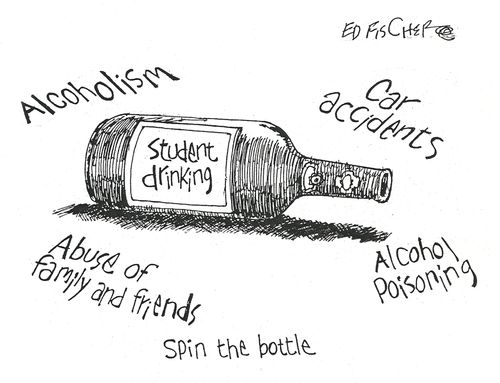 ED FISCHER
Alcoholism
Car
accidents
student
drinking
Abuse of
family and friends
Alcohol
Poisoning
Spin the bottle